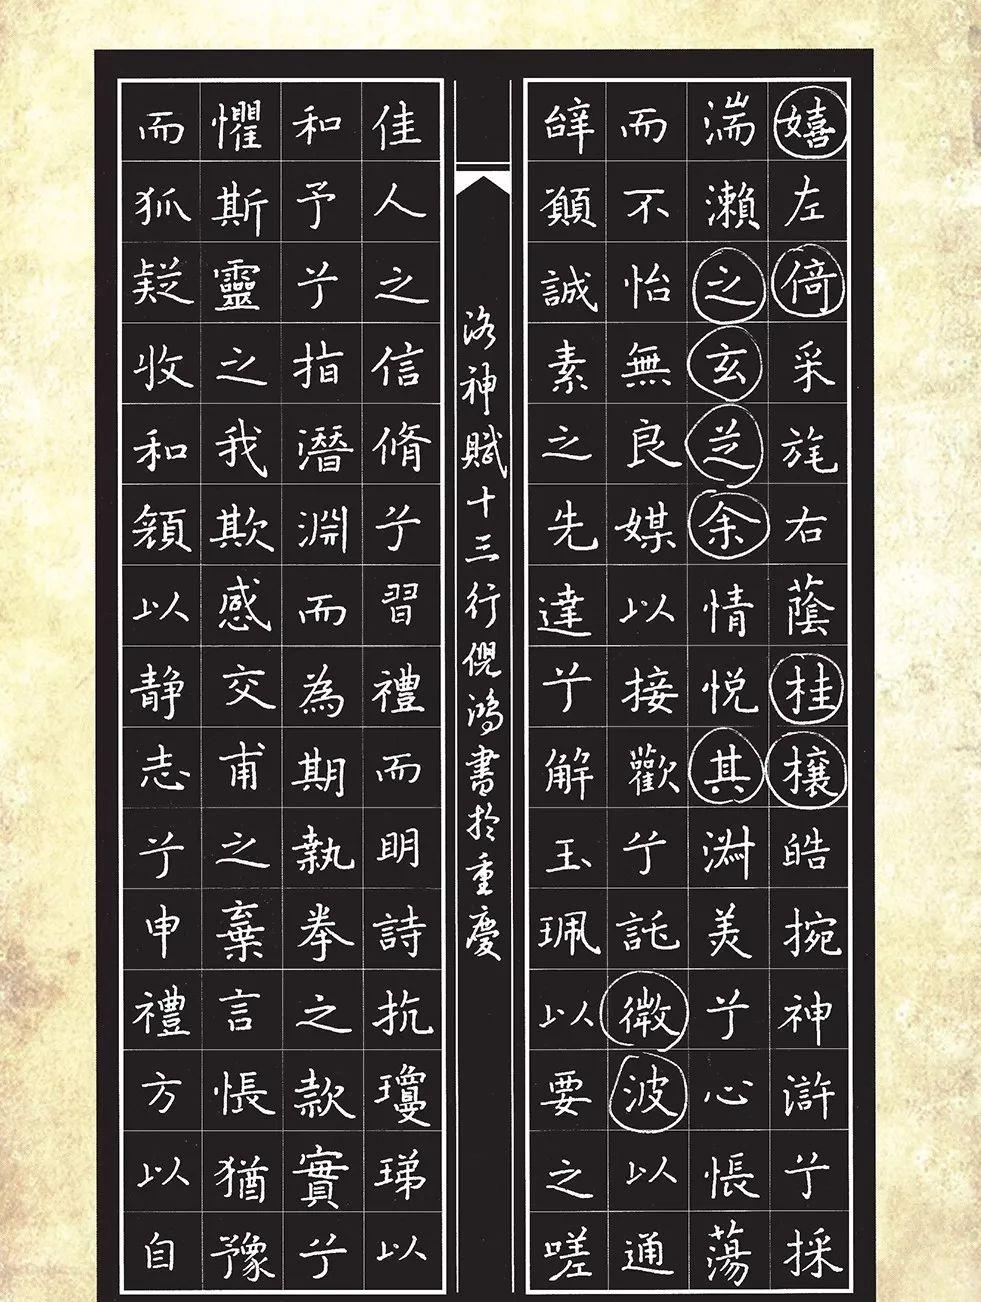 嬉左倚采旄右蔭桂攘皓捥神滸兮採
湍瀨之玄芝余情悅其淵美兮心悵蕩
而不怡無良媒以接歡兮託微波以通
辭願誠素之先達兮解玉珮以要之嗟
洛神賦十三行倪鴻書於重慶
佳人之信脩兮習禮而明詩抗瓊珶以
和予兮指潛淵而為期執拳之款實兮
懼斯靈之我欺感交甫之棄言悵猶豫
而狐疑收和顏以靜志兮申禮方以自